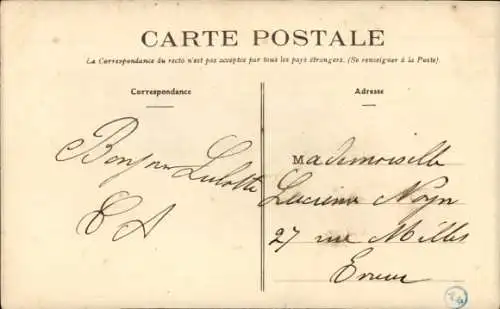 CARTE POSTALE
La Correspondance du recto n'est pas acceptée par tous les pays étrangers. (Se renseigner à la Poste)
Correspondance
Adresse
Bonjour Lulotte
Mademoiselle
Lucienne
27 rue